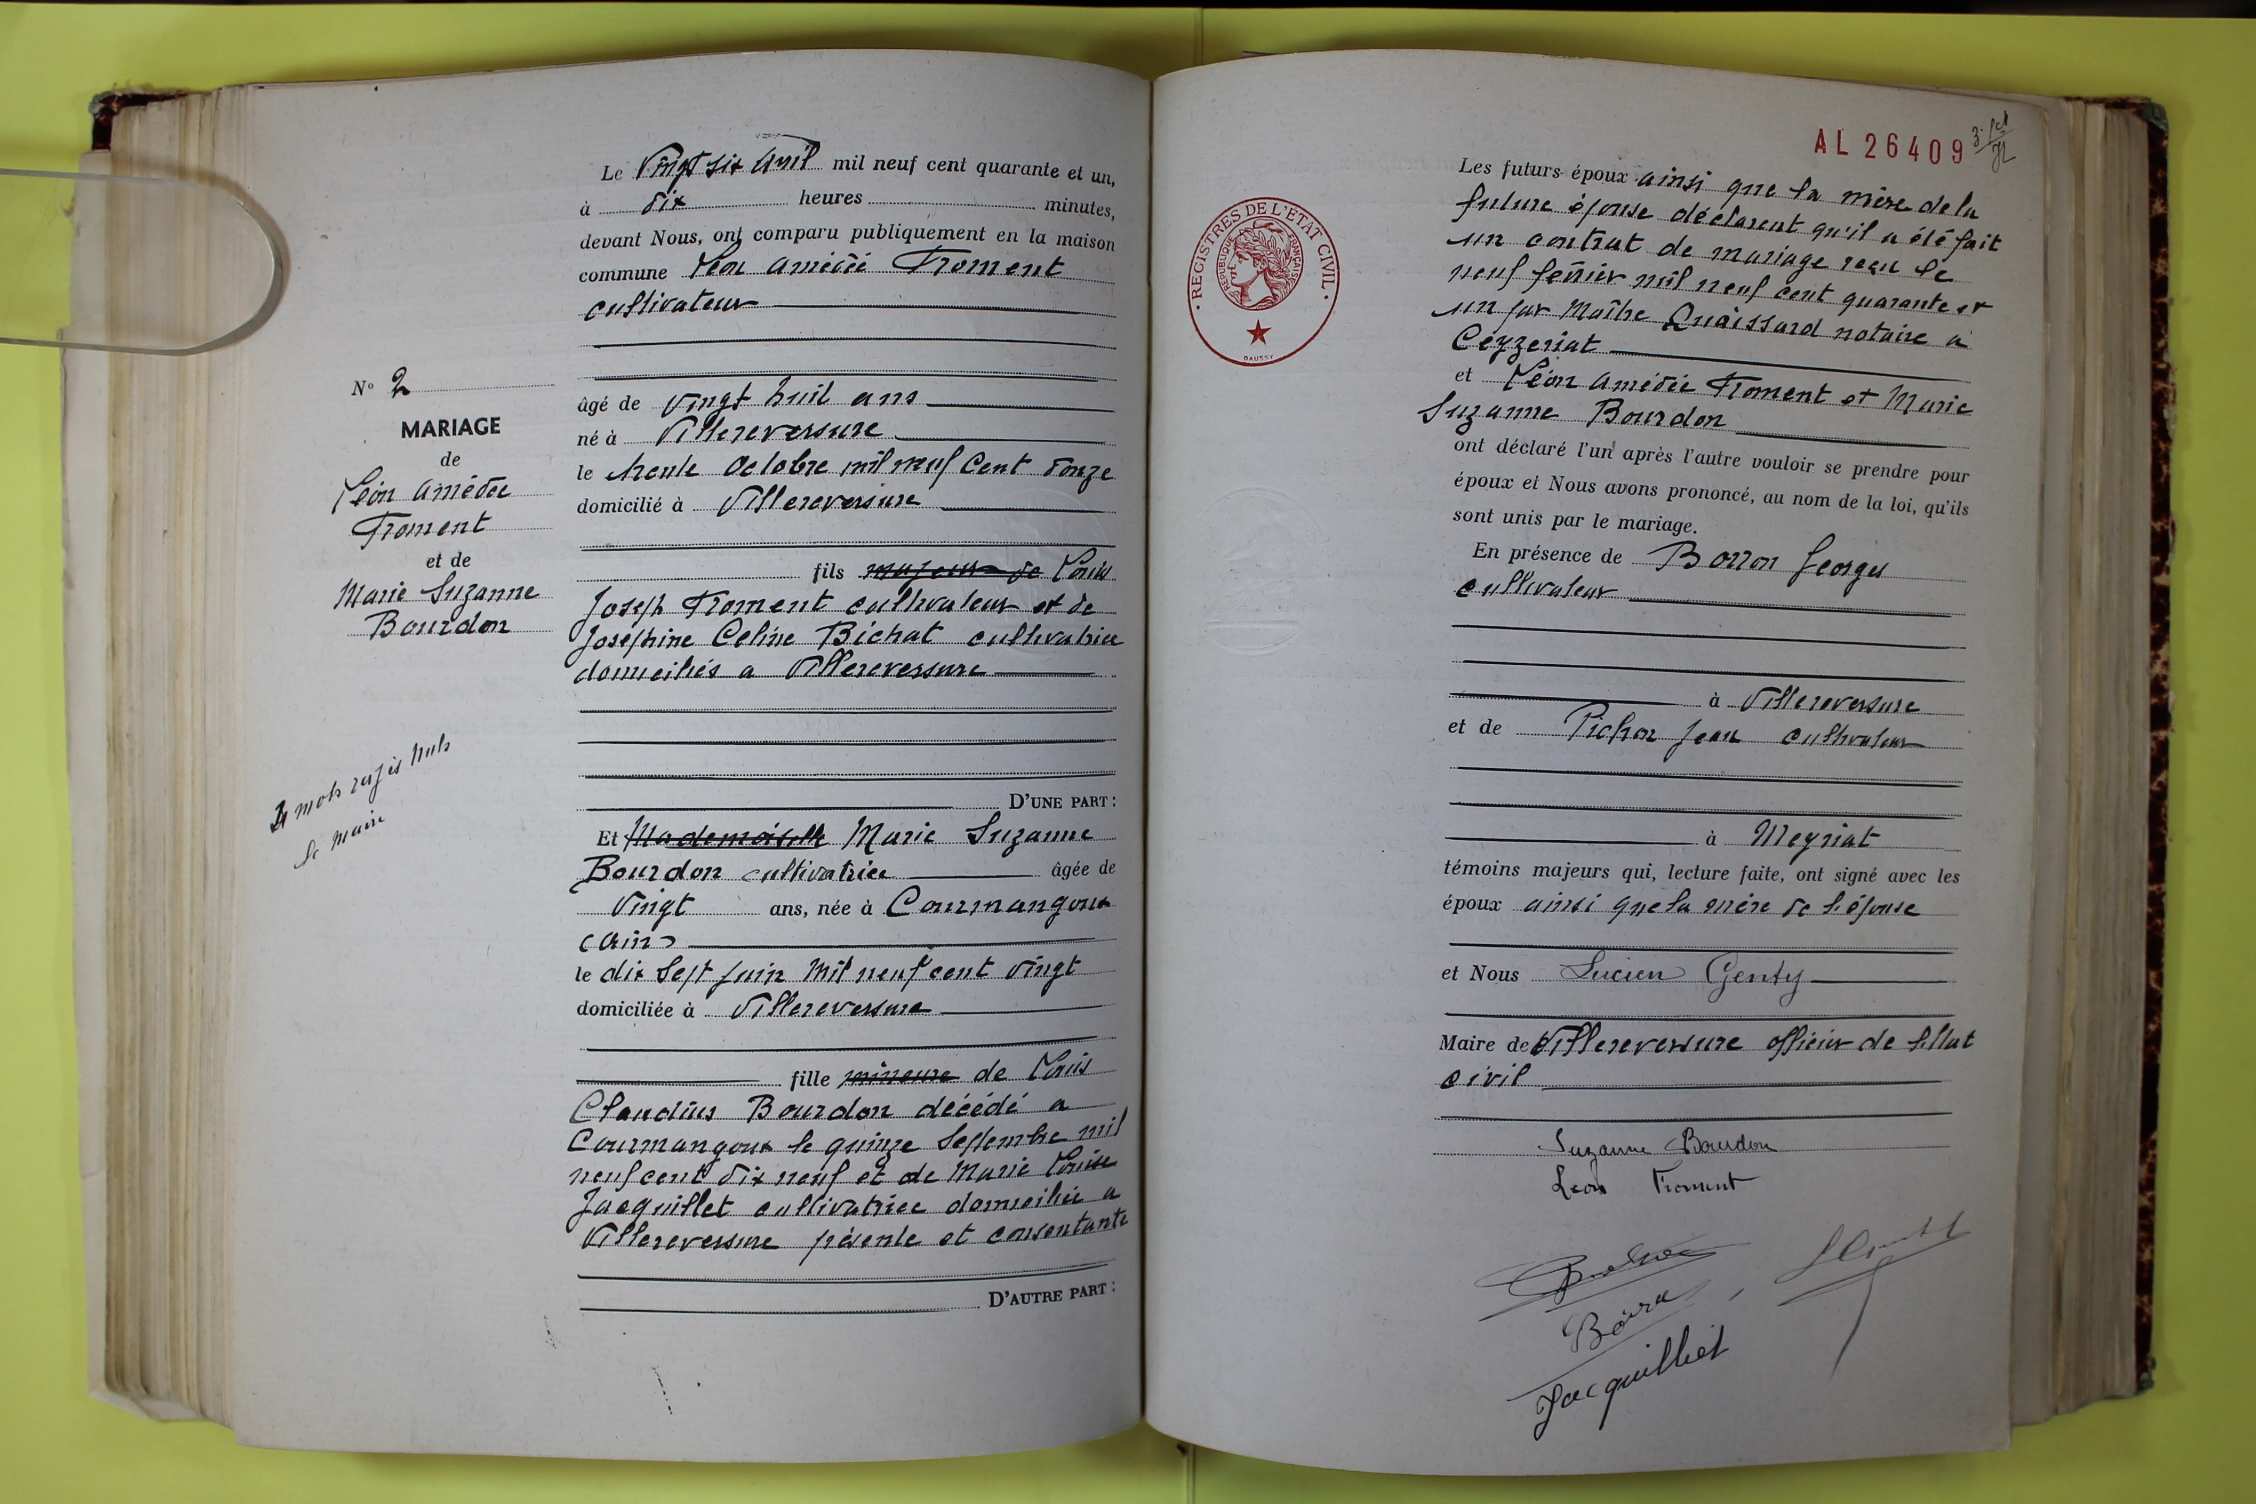 N° 2
MARIAGE
de
Léon Amédée
Froment
et de
Marie Suzanne
Bourdon
4 mots rayés nuls
Le Maire
Le Vingt six Avril mil neuf cent quarante et un,
à dix heures minutes,
devant Nous, ont comparu publiquement en la maison
commune Léon Amédée Froment
cultivateur
âgé de vingt huit ans
né à Villereversure
le trente Octobre mil neuf Cent douze
domicilié à Villereversure
fils majeur de Louis
Joseph Froment cultivateur et de
Joséphine Celine Bichat cultivatrice
domiciliés a Villereversure
D'UNE PART :
Et Mademoiselle Marie Suzanne
Bourdon cultivatrice âgée de
Vingt ans, née à Courmangoux
(Ain)
le dix Sept juin Mil neuf cent vingt
domiciliée à Villereversure
fille mineure de Louis
Claudius Bourdon décédé a
Courmangoux le quinze Septembre mil
neuf cent dix neuf et de Marie Louise
Jacquillet cultivatrice domiciliée a
Villereversure présente et consentante
D'AUTRE PART :
AL 26409
REGISTRES DE L'ETAT CIVIL
REPUBLIQUE FRANÇAISE
DAUSSY
Les futurs époux ainsi que la mère de la
future épouse déclarent qu'il a été fait
un contrat de mariage reçu le
neuf février mil neuf cent quarante et
un par Maître Quaissard notaire a
Ceyzeriat
et Léon Amédée Froment et Marie
Suzanne Bourdon
ont déclaré l'un après l'autre vouloir se prendre pour
époux et Nous avons prononcé, au nom de la loi, qu'ils
sont unis par le mariage.
En présence de Borron Georges
cultivateur
à Villereversure
et de Pichon Jean cultivateur
à Meyriat
témoins majeurs qui, lecture faite, ont signé avec les
époux ainsi que la mère de l'épouse
et Nous Lucien Genty
Maire de Villereversure officier de l'état
civil
Suzanne Bourdon
Leon Froment
Jacquilliet